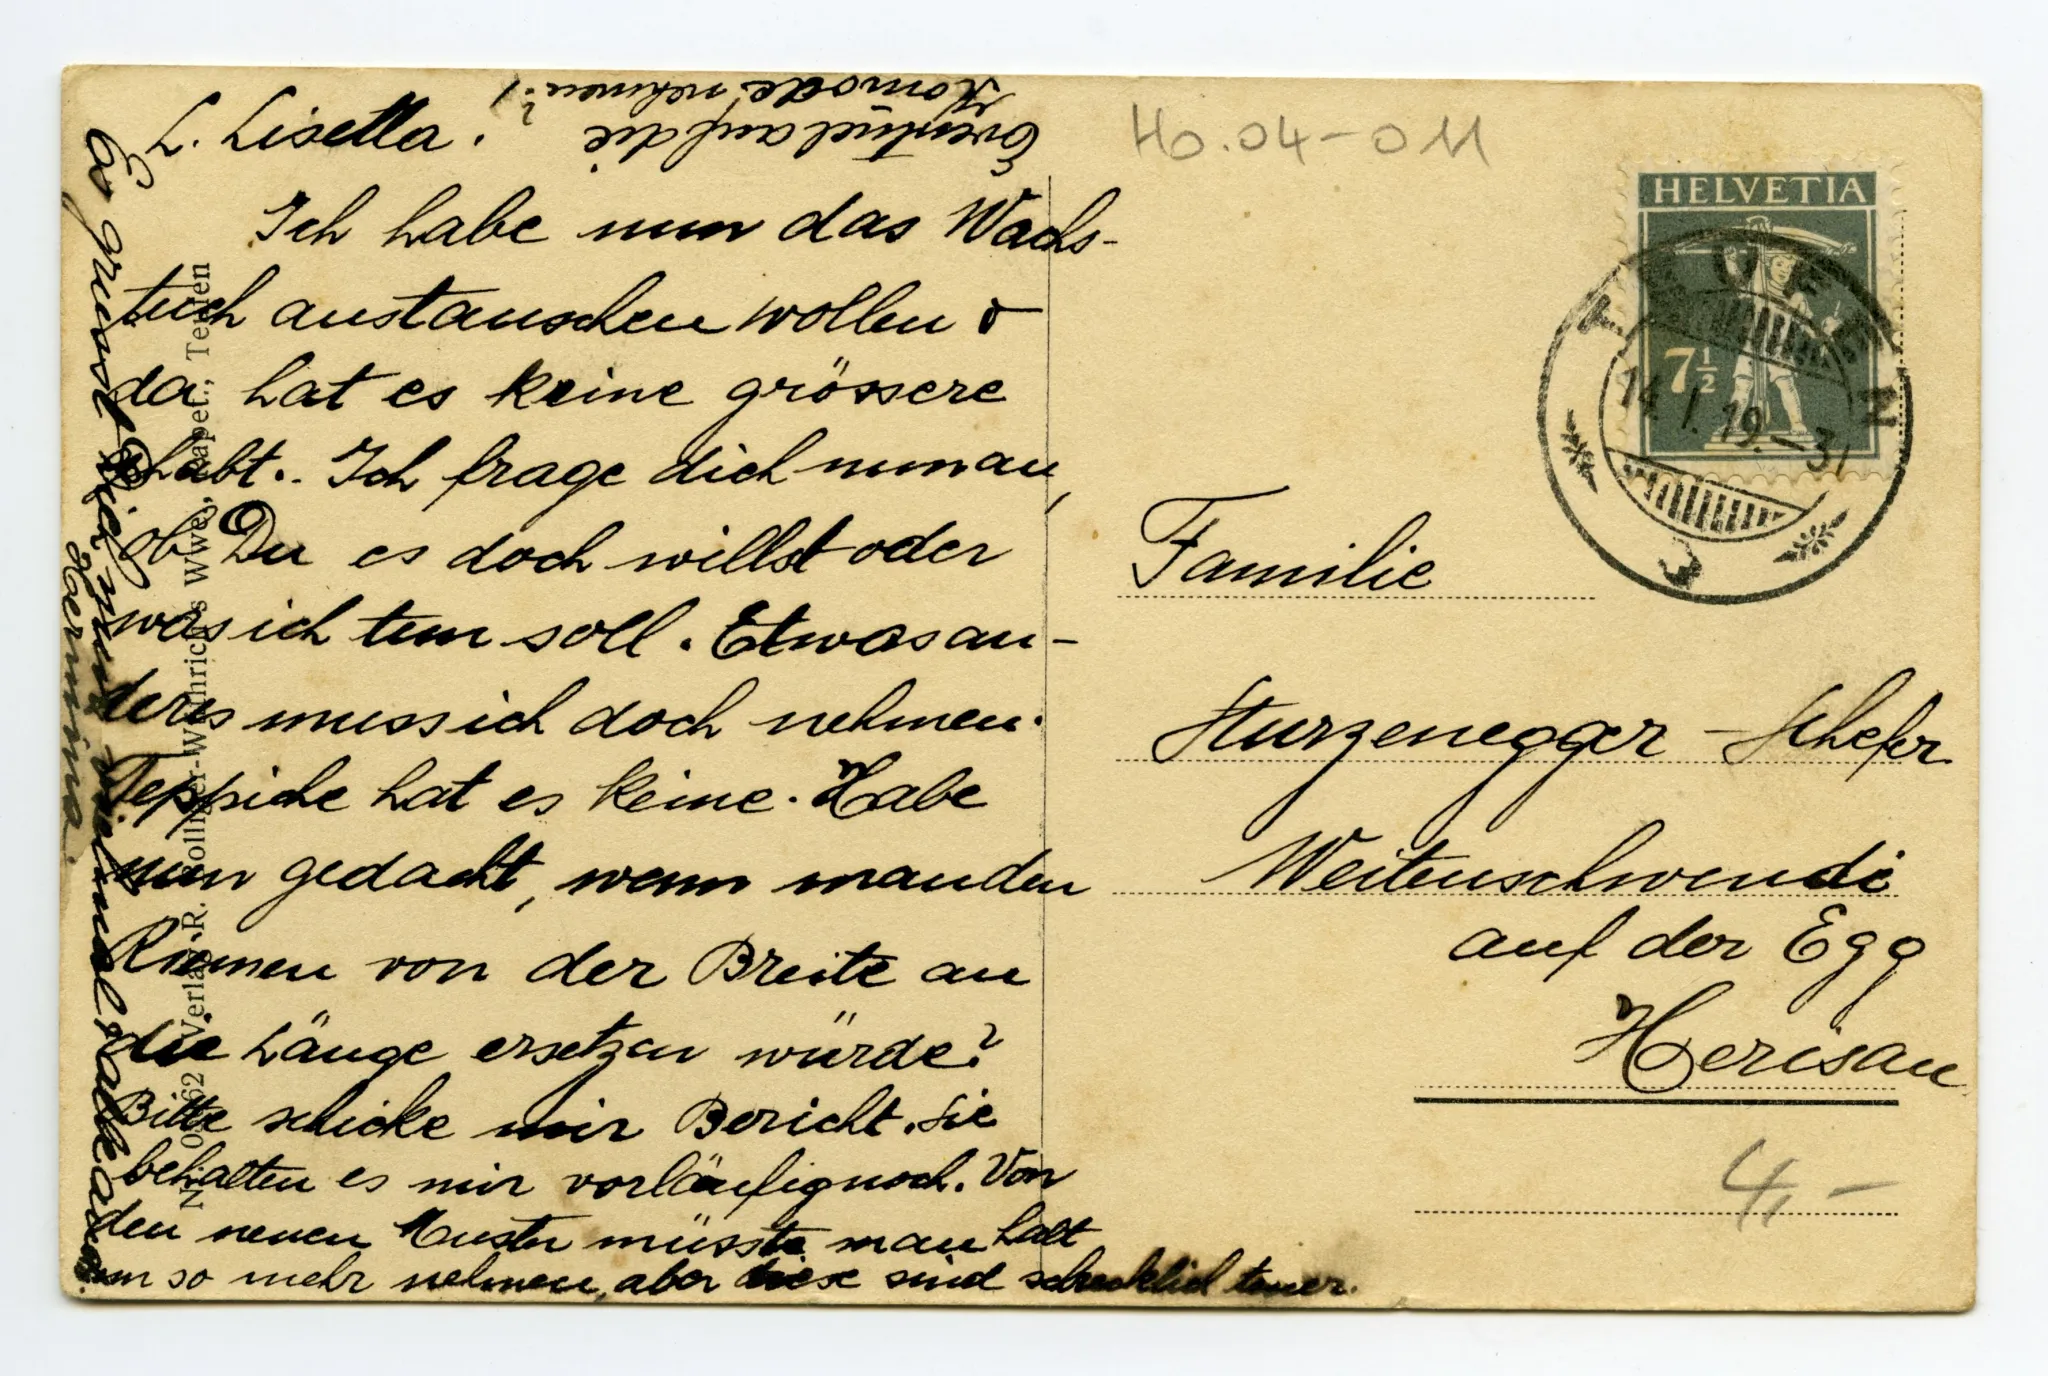 L. Lisetta.
Ich habe nun das Wachs-
tuch austauschen wollen &
da hat es keine grössere
gehabt. Ich frage dich nun an,
ob Du es doch willst oder
was ich tun soll. Etwas an-
deres muss ich doch nehmen.
Teppiche hat es keine. Habe
nun gedacht, wenn man den
Riemen von der Breite an
die Länge ersetzen würde?
Bitte schicke mir Bericht. Sie
behalten es mir vorläufig noch. Von
den neuen Muster müsste man halt
um so mehr nehmen, aber diese sind schrecklich teuer.
Eventuel auf die
Komode nehmen?!
Es grüsst Dich
Hermina.
Verlag R. Zollinger-Wehrich's Wwe., Papet., Teufen
Ho.04-011
HELVETIA
7½
TEUFEN
14.I.19.-3
Familie
Sturzenegger-Schefer
Weitenschwendi
auf der Egg
Herisau
4,-